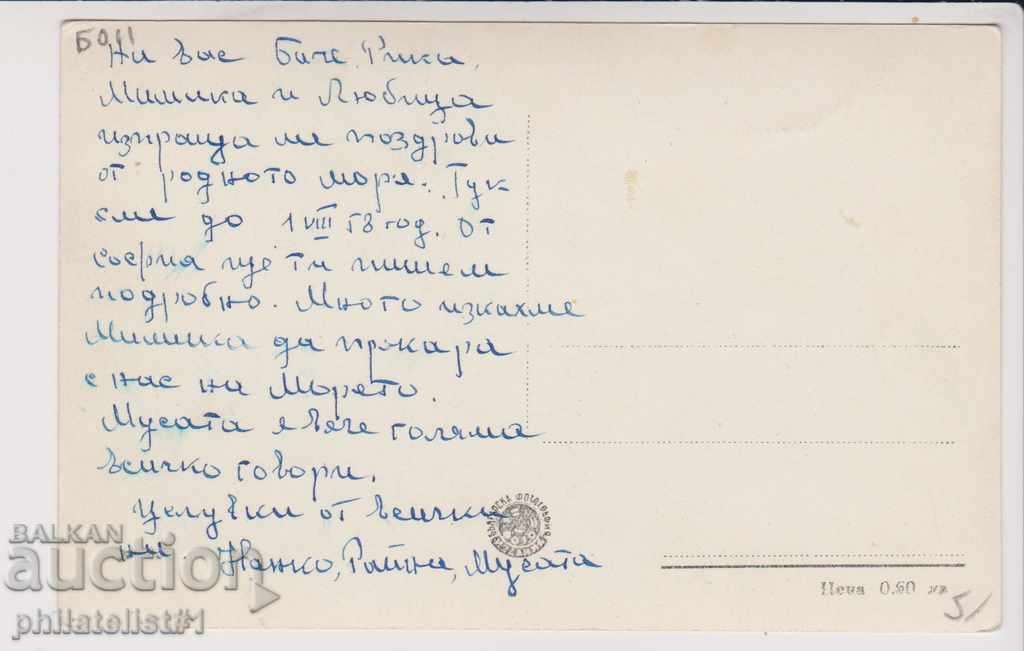 Б011
На вас Баче, Рика,
Мимика и Любица
изпраща ме поздрови
от родното море. Тук
сме до 1 VIII 58 год. От
София ще ти пишем
подробно. Много искахме
Мимика да прокара
с нас на морето.
Мусата я вече голяма
всичко говори.
Целувки от всички
ни Нанко, Райна, Мусата
Цена 0.60 лв.
51
BALKAN
auction
philatelist#1